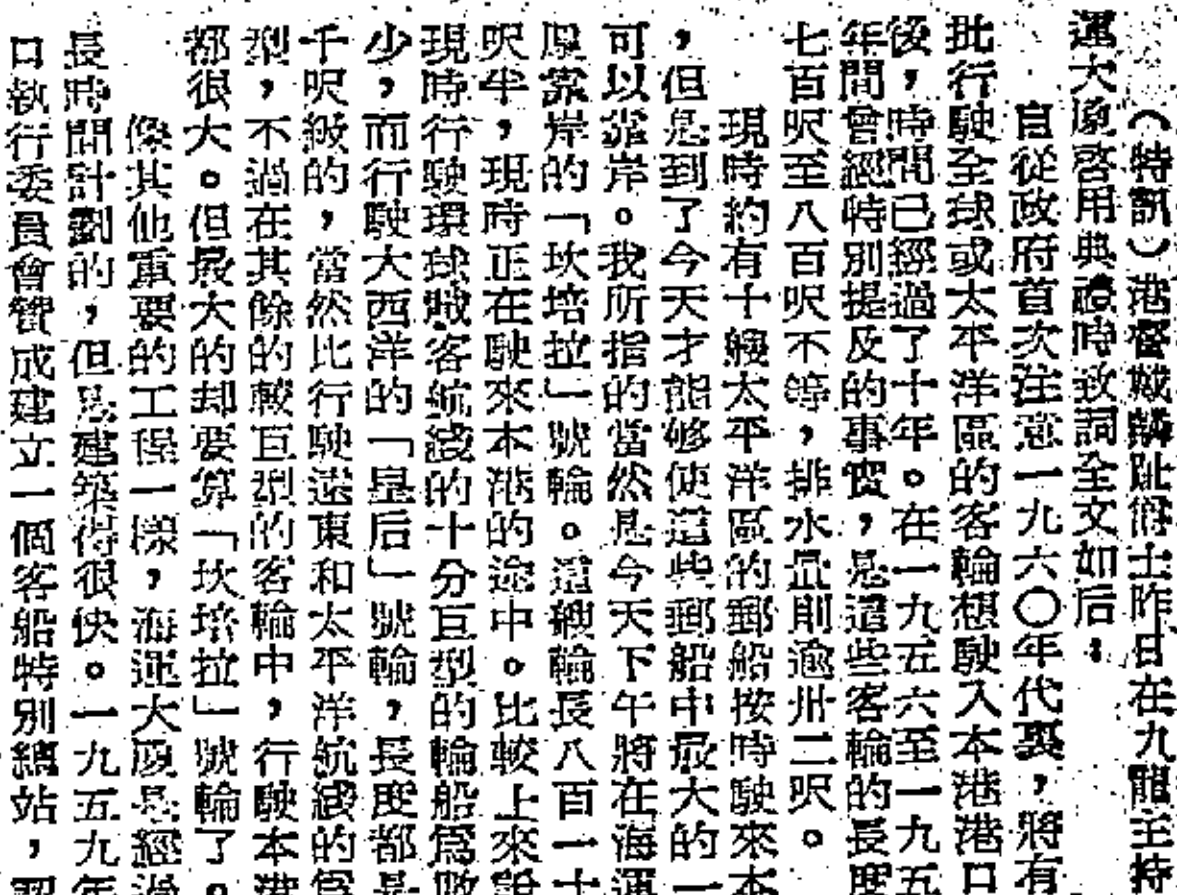 （特訊）港督戴麟趾爵士昨日在九龍主持
運大廈啓用典禮時致詞全文如后：
自從政府首次注意一九六〇年代裏，將有
批行駛全球或太平洋區的客輪想駛入本港港口
後，時間已經過了十年。在一九五六至一九五
年間曾經特別提及的事實，是這些客輪的長度
七百呎至八百呎不等，排水量則逾卅二呎。
現時約有十艘太平洋區的郵船按時駛來本
，但是到了今天才能够使這些郵船中最大的一
可以靠岸。我所指的當然是今天下午將在海運
廈靠岸的「坎培拉」號輪。這艘輪長八百一十
呎半，現時正在駛來本港的途中。比較上來說
現時行駛環球載客航綫的十分巨型的輪船爲數
少，而行駛大西洋的「皇后」號輪，長度都是
千呎級的，當然比行駛遠東和太平洋航綫的爲
型，不過在其餘的較巨型的客輪中，行駛本港
都很大。但最大的却要算「坎培拉」號輪了。
像其他重要的工程一樣，海運大廈是經過
長時間計劃的，但是建築得很快。一九五九年
口執行委員會贊成建立一個客船特別總站，認